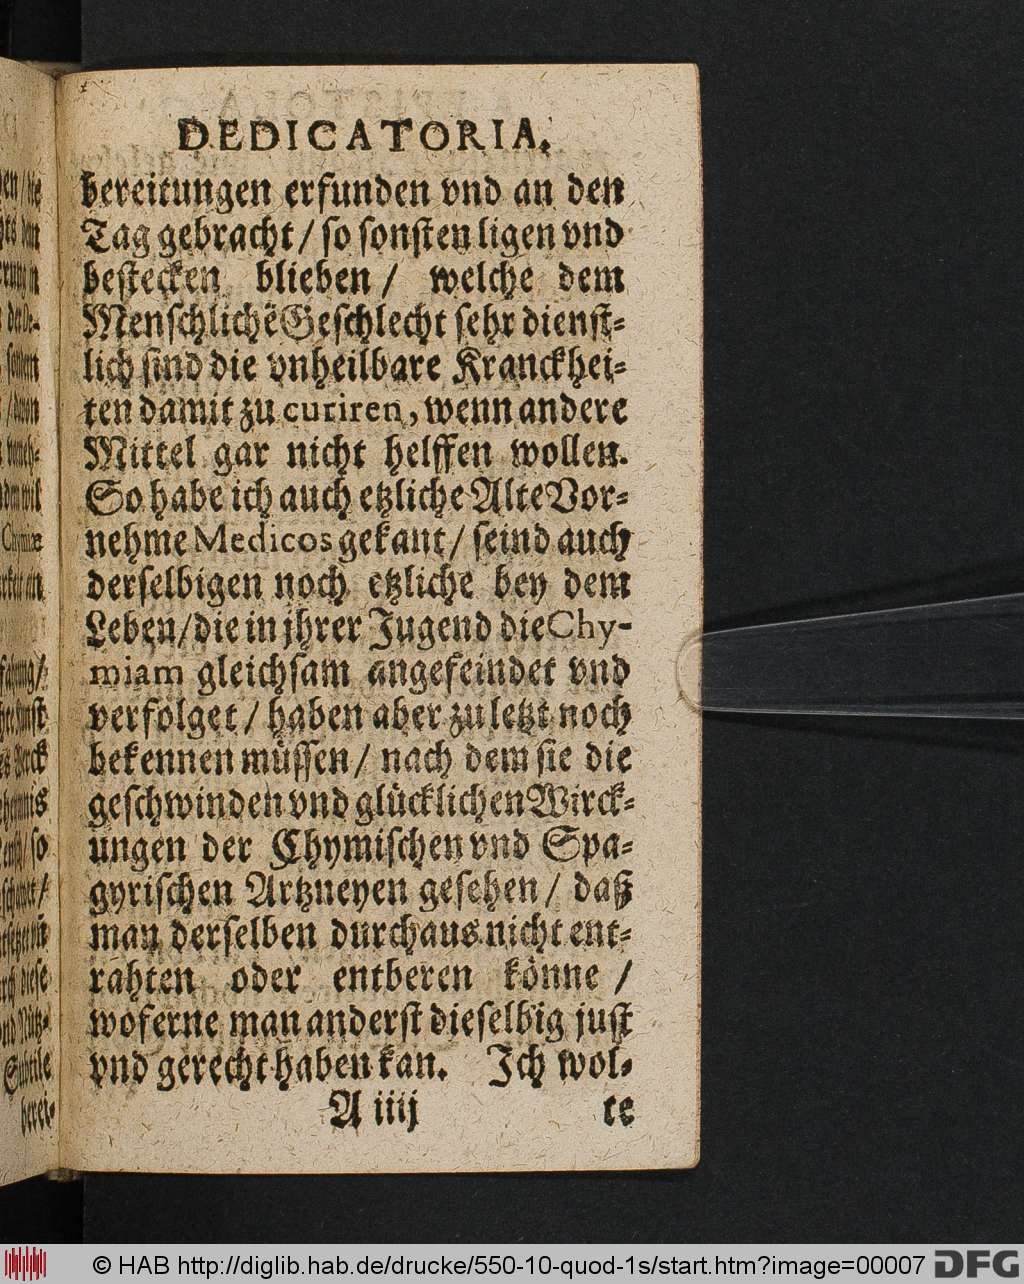 DEDICATORIA.
bereitungen erfunden vnd an den
Tag gebracht / so sonsten ligen vnd
bestecken blieben / welche dem
Menschlichẽ Geschlecht sehr dienst-
lich sind die vnheilbare Kranckhei-
ten damit zu curiren, wenn andere
Mittel gar nicht helffen wollen.
So habe ich auch etzliche Alte Vor-
nehme Medicos gekant / seind auch
derselbigen noch etzliche bey dem
Leben / die in jhrer Jugend die Chy-
miam gleichsam angefeindet vnd
verfolget / haben aber zu letzt noch
bekennen müssen / nach dem sie die
geschwinden vnd glücklichen Wirck-
ungen der Chymischen vnd Spa-
gyrischen Artzneyen gesehen / daß
man derselben durchaus nicht ent-
rahten oder entberen könne /
woferne man anderst dieselbig just
vnd gerecht haben kan. Ich wol-
A iiij te
© HAB http://diglib.hab.de/drucke/550-10-quod-1s/start.htm?image=00007 DFG